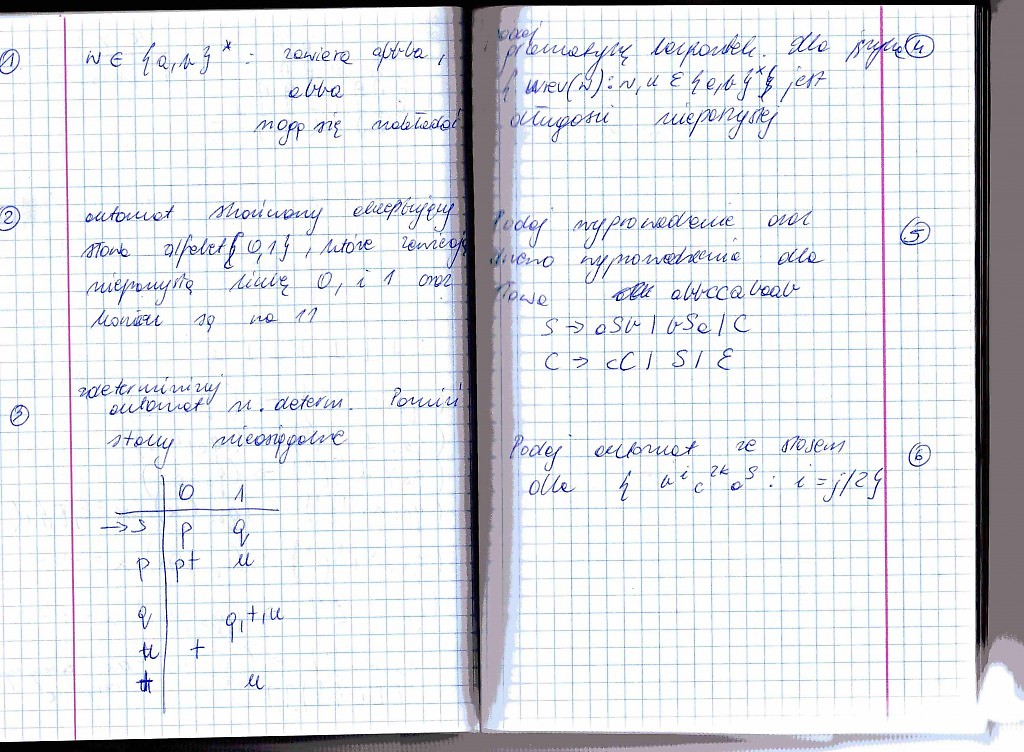 1
w ∈ {a,b}* : zawiera abbba,
abba
mogą się nakładać
2
automat skończony akceptujący
słowa alfabet {0,1}, które zawierają
nieparzystą liczbę 0, i 1 oraz
kończą są na 11
3
zdeterminizuj
automat n. determ. Pomiń
stany nieosiągalne
0 1
→ s p q
p pt u
q q,t,u
u t
t u
Podaj
gramatykę bezkontek. dla języka 4
{ uwev(w) : w, u ∈ {a,b}*} jest
długości nieparzystej
Podaj wyprowadzenie oraz 5
drzewo wyprowadzenia dla
słowa abbccabaab
S → aSb | bSa | C
C → cC | S | ε
Podaj automat ze stosem 6
dla { b^i c^2k a^j : i = j/2}